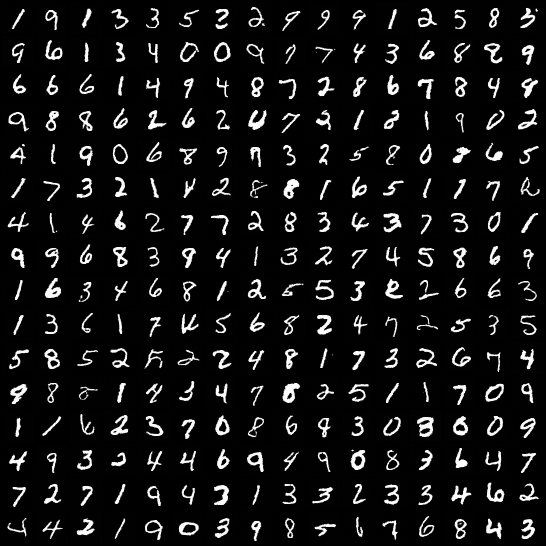 1 9 1 3 3 5 2 2 9 9 9 1 2 5 8 5
9 6 1 3 4 0 0 9 7 7 4 3 6 8 8 9
6 6 6 1 4 9 4 8 7 2 8 6 7 8 4 8
9 8 8 6 2 6 2 0 7 2 1 8 1 9 0 2
4 1 9 0 6 8 9 9 3 2 5 8 0 8 6 5
1 7 3 2 1 4 2 8 8 1 6 5 1 1 7 2
4 1 4 6 2 7 7 2 8 3 4 3 7 3 0 1
9 9 6 8 3 9 4 1 3 2 7 4 5 8 6 9
1 6 3 4 6 8 1 2 5 5 3 2 2 6 6 3
1 3 6 1 7 4 5 6 8 2 4 7 2 5 3 5
5 8 5 2 5 2 2 4 8 1 7 3 2 6 7 4
9 8 5 1 4 3 4 7 8 2 5 1 1 7 0 9
1 1 6 2 3 7 0 8 6 8 3 0 3 0 0 9
4 9 3 2 4 4 6 9 4 9 0 8 3 6 4 7
7 2 7 1 9 4 3 1 3 3 2 3 3 4 6 2
4 4 2 1 9 0 3 9 8 5 1 7 6 8 4 3